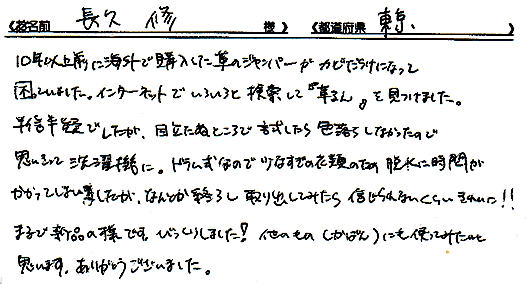 《お名前 長久 修 様》《都道府県 東京 》
10年以上前に海外で購入した革のジャンパーがカビだらけになって
困っていました。インターネットでいろいろと検索して『革るん』を見つけました。
半信半疑でしたが、目立たぬところで試したら色落ちしなかったので
思いきって洗濯機に。ドラム式なので少なすぎの衣類のため脱水に時間が
かかってしまいましたが、なんとか終了し取り出してみたら信じられないくらいきれいに!!
まるで新品の様です。びっくりしました!他のもの(かばん)にも使ってみたいと
思います。ありがとうございました。